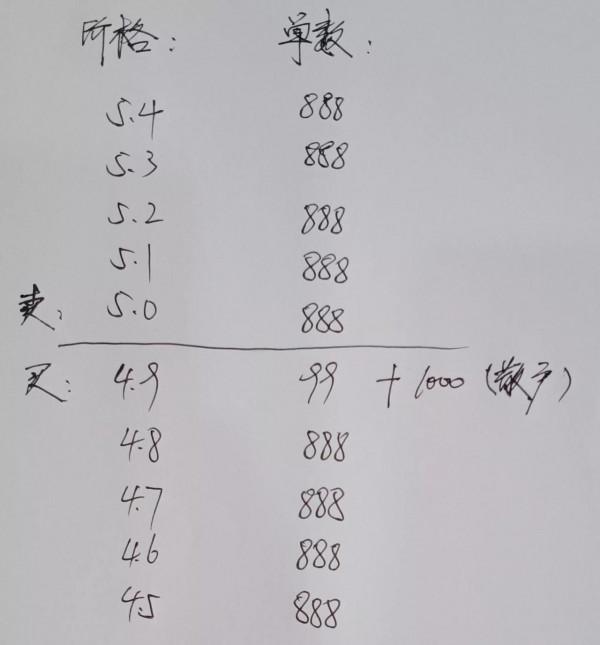 价格: 单数:
5.4 888
5.3 888
5.2 888
5.1 888
卖: 5.0 888
买: 4.9 99 + 1000 (散户)
4.8 888
4.7 888
4.6 888
4.5 888